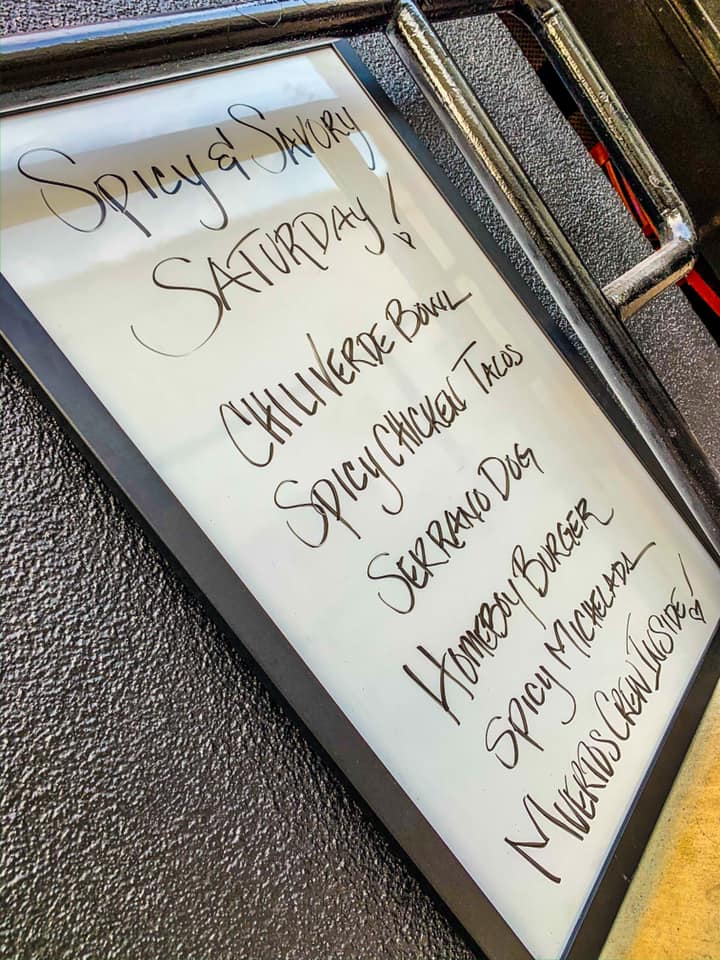 Spicy & Savory
Saturday!
Chili Verde Bowl
Spicy Chicken Tacos
Serrano Dog
Homeboy Burger
Spicy Michelada
Muertos Crew Inside!